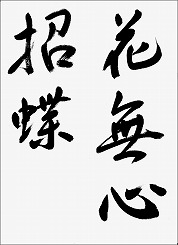 花無心
招蝶